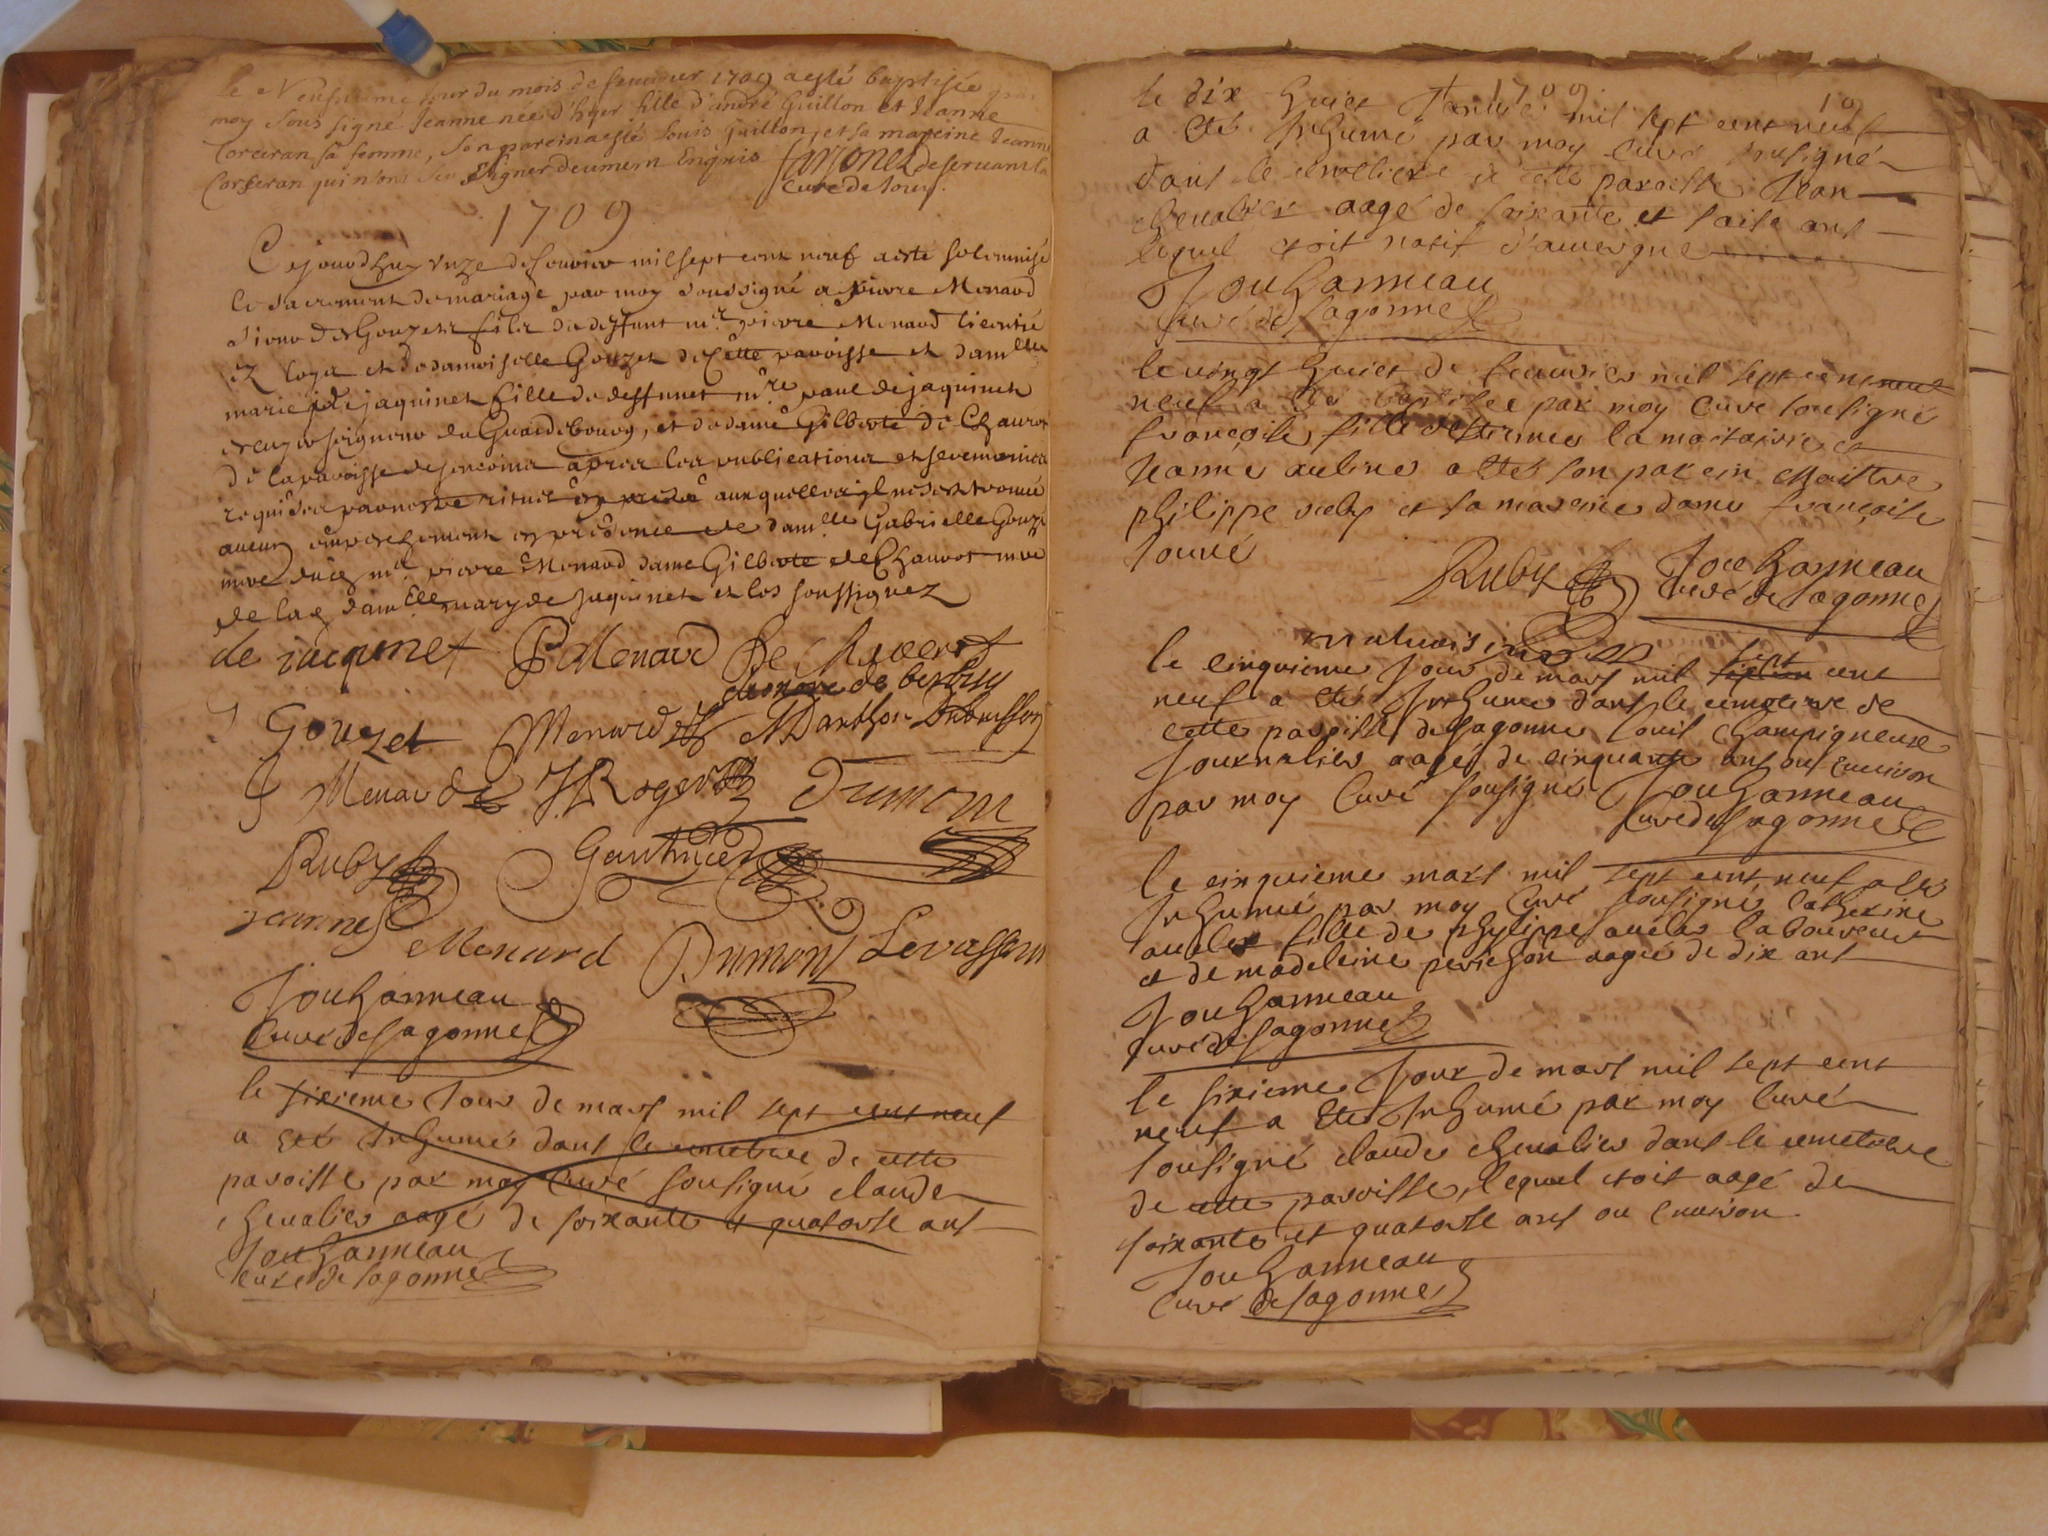 le Neufvieme jour du mois de fevrier 1709 a esté baptisée par
moy sous signé Jeanne née d'hyer fille d'andré Guillon et Jeanne
Corceran sa femme, son parein a esté Louis Guillon, et sa mareine Jeanne
Corseran qui n'ont sceu signer deument Enquis
deservant la
Cure de
1709
Cejourdhuy unze de feuvrier mil sept cent neuf a esté solemnisé
le sacrement de mariage par moy soussigné a pierre Menard
sieur des Gouzets fils de deffunt mr pierre Menard licentié
ez loya et de damoiselle Gouzet de Cette paroisse et damlle
marie de jaquinet fille de deffunct mre paul de jaquinet
escuyer seigneur du et de dame Gilberte de Chauvot
de la paroisse de sancoins apres les publications et seremonies
requises par nostre rituel auxquelles il ne s'est trouvé
aucun empeschement en presence de damlle Gabrielle Gouzet
mere dud mr pierre Menard dame Gilberte de Chauvot mere
de lad damlle mary de jaquinet et les soussignez
de jacquinet P Menard De Chauvot
de
Gouzet Menard
Menard J Roger Dumont
Ruby Gauthier
jeanne
Menard Dumont Levasseur
Jouhanneau
Curé de Sagonne
le sixieme Jour de mars mil sept cent neuf
a eté Inhumé dans le cimetiere de cette
paroisse par moy Curé sousigné claude
chevalier aagé de soixante et quatorse ans
Jouhanneau
curé de Sagonne
1709 19
le dix huict fevrier mil sept cent neuf
a eté Inhumé par moy Curé sousigné
dans le cimettiere de cette paroisse Jean
chevalier aagé de soixante et saise ans
lequel etoit natif d'auvergne
Jouhanneau
curé de Sagonne
le vingt huict de feuvrier mil sept cent neuf
neuf a eté baptisee par moy Curé sousigné
françoise fille d'estienne la maitairie et
Jeanne aubines a eté son parein Maittre
philippe ruby et sa mareine dame françoise
Jouvé
Ruby Jouhanneau
Curé de Sagonne
le cinquieme Jour de mars mil sept cent
neuf a eté Inhumé dans le cimetiere de
cette paroisse de Sagonne Louis Champigneux
Journalier aagé de cinquante ans ou environ
par moy Curé sousigné Jouhanneau
Curé de Sagonne
le cinquieme mars mil sept cent neuf a eté
Inhumée par moy Curé sousigné Catherine
aucler fille de phylippe aucler laboureur
et de madeleine perichon aagée de dix ans
Jouhanneau
curé de Sagonne
le sixieme Jour de mars mil sept cent
neuf a eté Inhumé par moy Curé
sousigné claude chevalier dans le cimetiere
de cette paroisse, lequel etoit aagé de
soixante et quatorse ans ou environ.
Jouhanneau
Curé de Sagonne